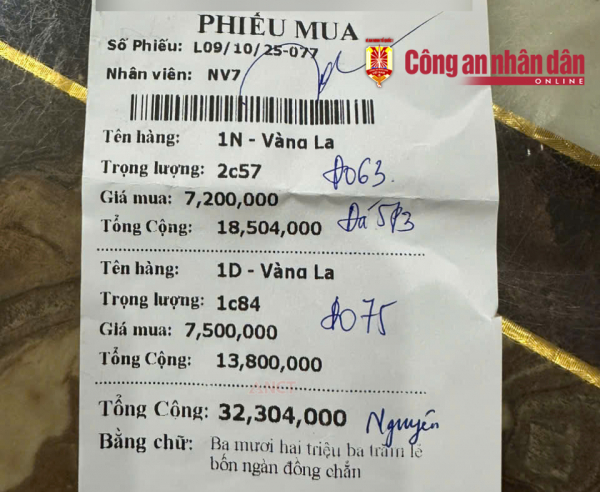 Công an nhân dân
ONLINE
PHIẾU MUA
Số Phiếu: L09/10/25-077
Nhân viên: NV7
Tên hàng: 1N - Vàng La
Trọng lượng: 2c57
Đo63.
Giá mua: 7,200,000
Đá 5p3
Tổng Cộng: 18,504,000
Tên hàng: 1D - Vàng La
Trọng lượng: 1c84
Đo75
Giá mua: 7,500,000
Tổng Cộng: 13,800,000
ANCT
Tổng Cộng: 32,304,000
Nguyên
Bằng chữ: Ba mươi hai triệu ba trăm lẻ
bốn ngàn đồng chẵn